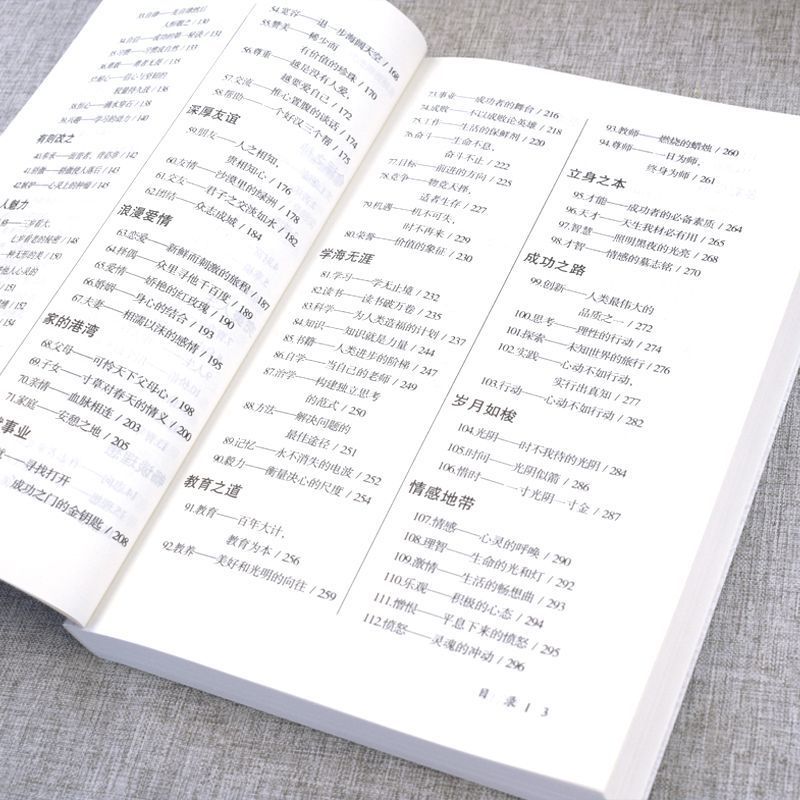 人所敬之 / 130
34.自信——成功的第一秘诀 / 131
35.习惯——习惯成自然 / 133
36.勇敢——勇者无畏 / 135
37.耐心——信心与坚韧的
38.恒心——滴水穿石 / 138
39.兴趣——学习的动力 / 140
有则改之
/ 142
/ 145
42.嫉妒——心灵上的肿瘤 / 147
人魅力
三岁看大,
七岁看老的秘密 / 148
一种无形的美 / 150
/ 151
/ 152
/ 154
54.宽容——退一步海阔天空 / 168
55.赞美——稀少而
有价值的珍珠 / 170
56.尊重——越是没有人爱,
越要爱自己 / 172
57.交流——推心置腹的谈话 / 174
58.帮助——一个好汉三个帮 / 175
深厚友谊
59.朋友——人之相知,
贵相知心 / 176
60.友情——沙漠里的绿洲 / 178
61.交友——君子之交淡如水 / 182
62.团结——众志成城 / 184
浪漫爱情
63.恋爱——新鲜而刺激的旅程 / 187
64.择偶——众里寻他千百度 / 189
65.爱情——娇艳的红玫瑰 / 190
66.婚姻——身心的结合 / 193
67.夫妻——相濡以沫的感情 / 195
家的港湾
68.父母——可怜天下父母心 / 198
69.子女——寸草对春天的情义 / 200
70.亲情——血脉相连 / 203
71.家庭——安憩之地 / 205
事业
——寻找打开
成功之门的金钥匙 / 208
73.事业——成功者的舞台 / 216
74.成败——不以成败论英雄 / 218
75.工作——生活的保鲜剂 / 220
76.奋斗——生命不息,
奋斗不止 / 222
77.目标——前进的方向 / 225
78.竞争——物竞天择,
适者生存 / 227
79.机遇——机不可失,
时不再来 / 229
80.荣誉——价值的象征 / 230
学海无涯
81.学习——学无止境 / 232
82.读书——读书破万卷 / 235
83.科学——为人类造福的计划 / 237
84.知识——知识就是力量 / 244
85.书籍——人类进步的阶梯 / 247
86.自学——当自己的老师 / 249
87.治学——构建独立思考
的范式 / 250
88.方法——解决问题的
最佳途径 / 251
89.记忆——永不消失的电波 / 252
90.毅力——衡量决心的尺度 / 254
教育之道
91.教育——百年大计,
教育为本 / 256
92.教养——美好和光明的向往 / 259
93.教师——燃烧的蜡烛 / 260
94.尊师——一日为师,
终身为师 / 261
立身之本
95.才能——成功者的必备素质 / 264
96.天才——天生我材必有用 / 265
97.智慧——照明黑夜的光亮 / 268
98.才智——情感的墓志铭 / 270
成功之路
99.创新——人类最伟大的
品质之一 / 272
100.思考——理性的行动 / 274
101.探索——未知世界的旅行 / 276
102.实践——心动不如行动,
实行出真知 / 277
103.行动——心动不如行动 / 282
岁月如梭
104.光阴——时不我待的光阴 / 284
105.时间——光阴似箭 / 286
106.惜时——一寸光阴一寸金 / 287
情感地带
107.情感——心灵的呼唤 / 290
108.理智——生命的光和灯 / 292
109.激情——生活的畅想曲 / 293
110.乐观——积极的心态 / 294
111.憎恨——平息下来的愤怒 / 295
112.愤怒——灵魂的冲动 / 296
目 录 | 3